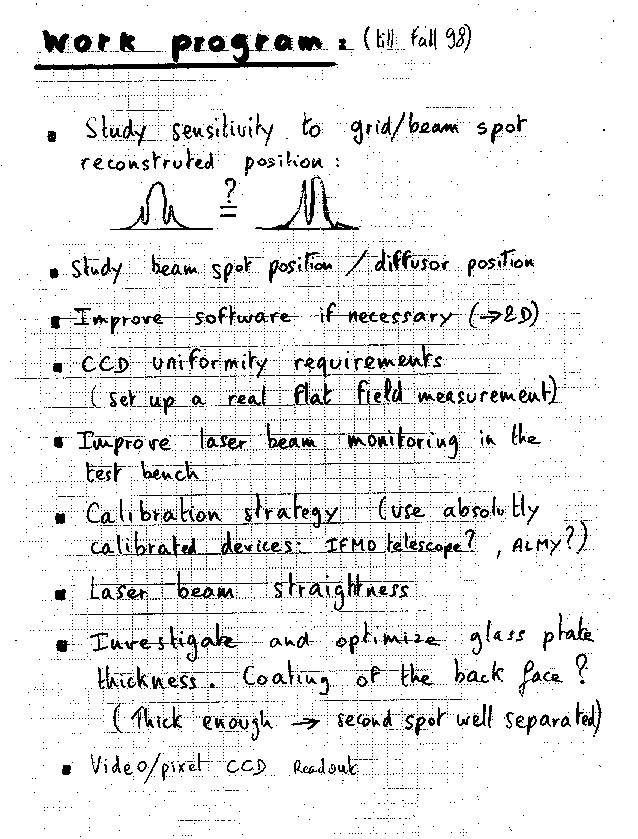 Work program : (till Fall 98)
▪ Study sensitivity to grid/beam spot
reconstruted position :
?
=
▪ Study beam spot position / diffusor position
▪ Improve software if necessary (→2D)
▪ CCD uniformity requirements
(set up a real flat field measurement)
▪ Improve laser beam monitoring in the
test bench
▪ Calibration strategy (use absolutly
calibrated devices: IFMO telescope? , ALMY?)
▪ Laser beam straightness
▪ Investigate and optimize glass plate
thickness. Coating of the back face ?
(Thick enough → second spot well separated)
▪ Video/pixel CCD Readout